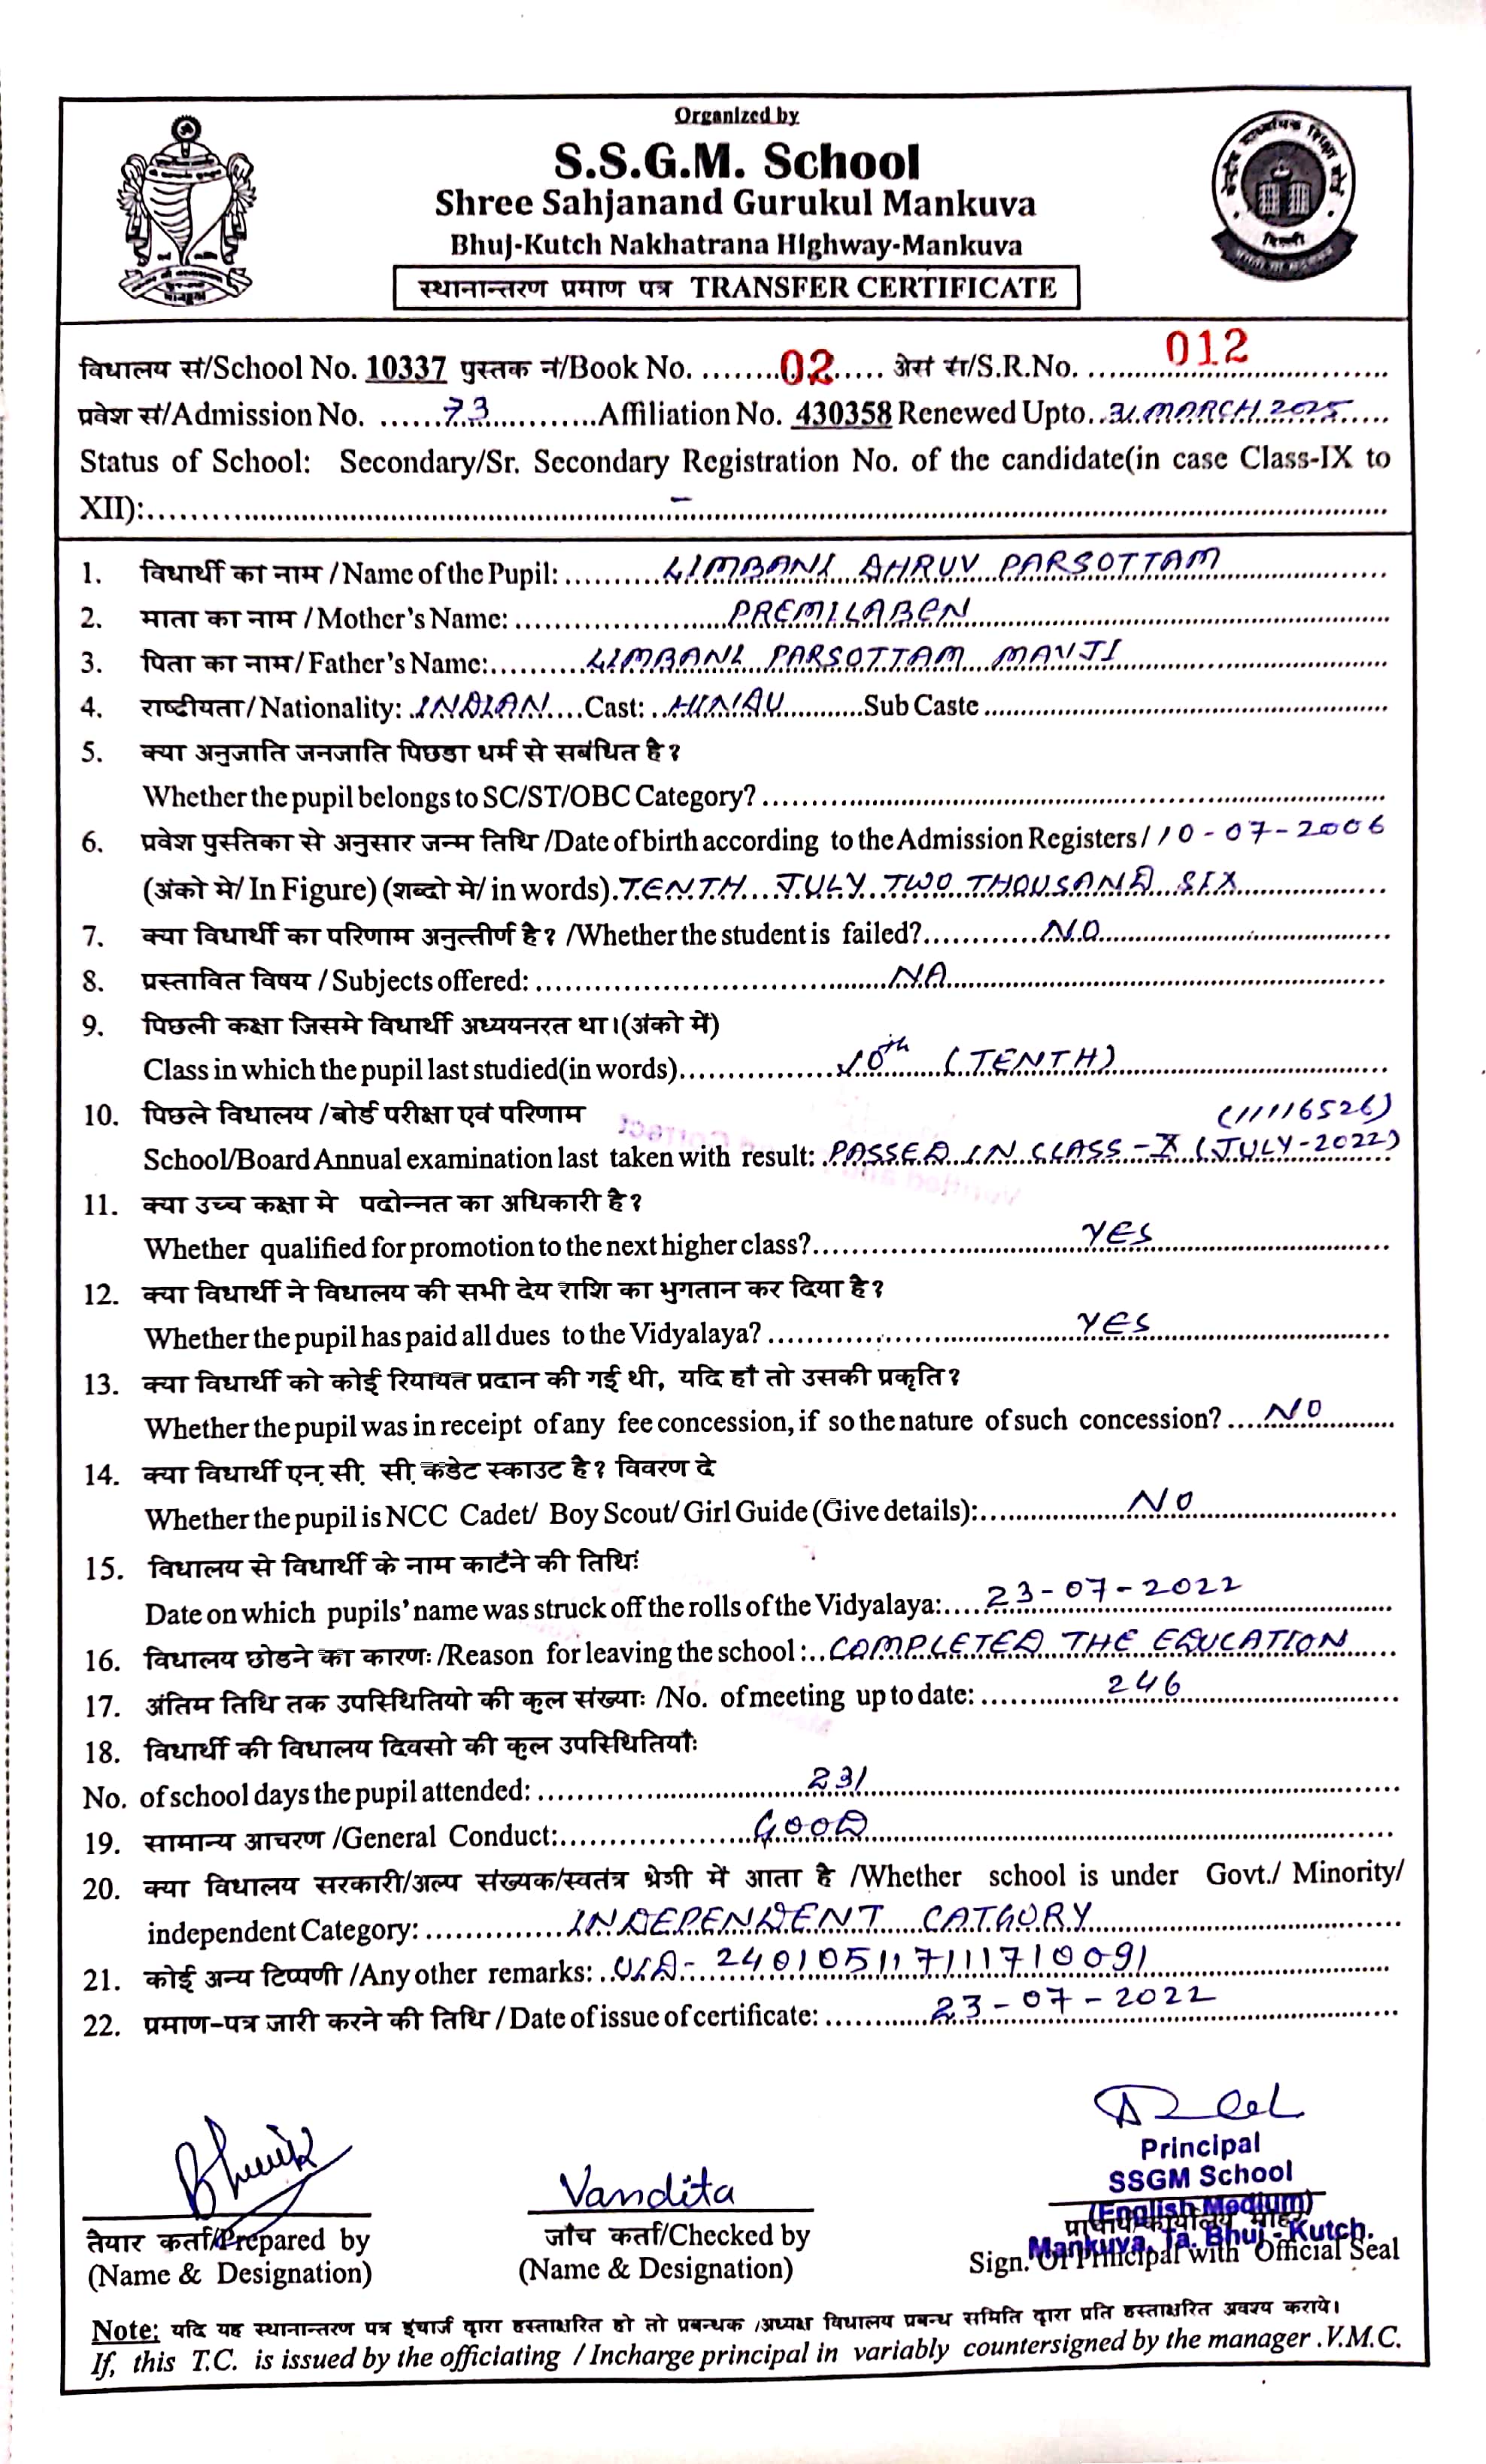 Organized by
S.S.G.M. School
Shree Sahjanand Gurukul Mankuva
Bhuj-Kutch Nakhatrana Highway-Mankuva
स्थानान्तरण प्रमाण पत्र TRANSFER CERTIFICATE
विधालय सं/School No. 10337 पुस्तक नं/Book No. ........02...... S.R.No. 012
प्रवेश सं/Admission No. ......73............Affiliation No. 430358 Renewed Upto..31 MARCH 2025....
Status of School: Secondary/Sr. Secondary Registration No. of the candidate(in case Class-IX to
XII):.......... –
1. विधार्थी का नाम / Name of the Pupil: .......... LIMBANI DHRUV PARSOTTAM
2. माता का नाम / Mother's Name: .......... PREMILABEN
3. पिता का नाम/ Father's Name:.......... LIMBANI PARSOTTAM MAVJI
4. राष्टीयता/ Nationality: INDIAN....Cast: ..HINDU..........Sub Caste ..........
5. क्या अनुजाति जनजाति पिछडा धर्म से सबंधित है?
Whether the pupil belongs to SC/ST/OBC Category? ..........
6. प्रवेश पुस्तिका से अनुसार जन्म तिथि /Date of birth according to the Admission Registers/ 10-07-2006
(अंको मे/ In Figure) (शब्दो मे/ in words). TENTH JULY TWO THOUSAND SIX
7. क्या विधार्थी का परिणाम अनुत्तीर्ण है? /Whether the student is failed?.......... NO
8. प्रस्तावित विषय / Subjects offered: .......... NA
9. पिछली कक्षा जिसमे विधार्थी अध्ययनरत था।(अंको में)
Class in which the pupil last studied(in words).......... 10th (TENTH)
10. पिछले विधालय /बोर्ड परीक्षा एवं परिणाम (11116526)
School/Board Annual examination last taken with result: PASSED IN CLASS-X (JULY-2022)
11. क्या उच्च कक्षा मे पदोन्नत का अधिकारी है?
Whether qualified for promotion to the next higher class?.......... YES
12. क्या विधार्थी ने विधालय की सभी देय राशि का भुगतान कर दिया है?
Whether the pupil has paid all dues to the Vidyalaya? .......... YES
13. क्या विधार्थी को कोई रियायत प्रदान की गई थी, यदि हाँ तो उसकी प्रकृति?
Whether the pupil was in receipt of any fee concession, if so the nature of such concession? .... NO
14. क्या विधार्थी एन. सी. सी. कडेट स्काउट है? विवरण दे
Whether the pupil is NCC Cadet/ Boy Scout/ Girl Guide (Give details):.......... NO
15. विधालय से विधार्थी के नाम काटँने की तिथिः
Date on which pupils' name was struck off the rolls of the Vidyalaya:.... 23-07-2022
16. विधालय छोडने का कारणः /Reason for leaving the school :.. COMPLETED THE EDUCATION
17. अंतिम तिथि तक उपस्थितियो की कुल संख्याः /No. of meeting up to date: .......... 246
18. विधार्थी की विधालय दिवसो की कुल उपस्थितियाँः
No. of school days the pupil attended: .......... 231
19. सामान्य आचरण /General Conduct:.......... GOOD
20. क्या विधालय सरकारी/अल्प संख्यक/स्वतंत्र श्रेगी में आता है /Whether school is under Govt./ Minority/
independent Category: .......... INDEPENDENT CATGORY
21. कोई अन्य टिप्पणी /Any other remarks: .. UID- 240105117111710091
22. प्रमाण-पत्र जारी करने की तिथि / Date of issue of certificate: .......... 23-07-2022
Principal
SSGM School
(English Medium)
Mankuva, Ta. Bhuj - Kutch.
Vandita
तैयार कर्ता/Prepared by
(Name & Designation)
जाँच कर्ता/Checked by
(Name & Designation)
Sign. Of Principal with Official Seal
Note: यदि यह स्थानान्तरण पत्र इंचार्ज द्वारा हस्ताक्षरित हो तो प्रबन्धक /अध्यक्ष विधालय प्रबन्ध समिति द्वारा प्रति हस्ताक्षरित अवश्य कराये।
If, this T.C. is issued by the officiating / Incharge principal in variably countersigned by the manager .V.M.C.